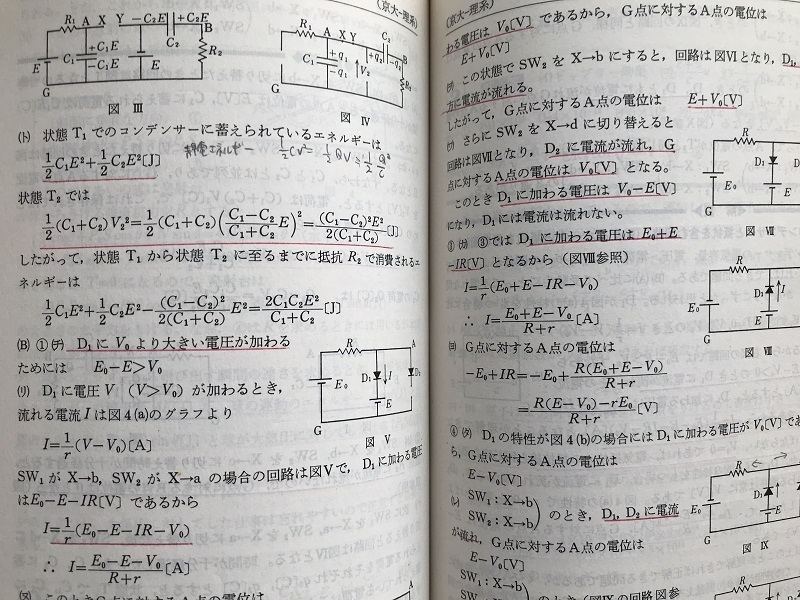 (京大-理系)
R₁ A X Y −C₂E +C₂E B
+C₁E
−C₁E
C₁ C₂ E E R₂
G
図 Ⅲ
R₁ A X Y C₂ B
+q₁
−q₁
C₁ V₂ R₂
G
図 Ⅳ
(ト) 状態 T₁ でのコンデンサーに蓄えられているエネルギーは
静電エネルギー 1/2 CV² = 1/2 QV = 1/2 Q²/C
1/2 C₁E² + 1/2 C₂E² [J]
状態 T₂ では
1/2 (C₁+C₂)V₂² = 1/2 (C₁+C₂)((C₁−C₂)/(C₁+C₂) E)² = (C₁−C₂)²E²/2(C₁+C₂) [J]
したがって，状態 T₁ から状態 T₂ に至るまでに抵抗 R₂ で消費されるエ
ネルギーは
1/2 C₁E² + 1/2 C₂E² − (C₁−C₂)²/2(C₁+C₂) E² = 2C₁C₂E²/(C₁+C₂) [J]
(B) ①(チ) D₁ に V₀ より大きい電圧が加わる
ためには E₀−E>V₀
(リ) D₁ に電圧 V (V>V₀) が加わるとき，
流れる電流 I は図 4 (a)のグラフより
I=1/r (V−V₀) [A]
R A
E₀ D₁ I D₂
E
G
図 Ⅴ
SW₁ が X→b，SW₂ が X→a の場合の回路は図Ⅴで，D₁ に加わる電圧
は E₀−E−IR[V] であるから
I=1/r (E₀−E−IR−V₀)
∴ I=(E₀−E−V₀)/(R+r) [A]
(京大-理系)
わる電圧は V₀[V] であるから，G点に対するA点の電位は
E+V₀[V]
この状態で SW₂ を X→b にすると，回路は図Ⅵとなり，D₁,
方に電流が流れる。
したがって，G点に対するA点の電位は E+V₀[V]
さらに SW₂ を X→d に切り替えると
回路は図Ⅶとなり，D₂ に電流が流れ，G
点に対するA点の電位は V₀[V] となる。
このとき D₁ に加わる電圧は V₀−E[V]
になり，D₁ には電流は流れない。
R
E₀ D₁
E
G
図 Ⅶ
では D₁ に加わる電圧は E₀+E
−IR[V] となるから（図Ⅷ参照）
I=1/r (E₀+E−IR−V₀)
∴ I=(E₀+E−V₀)/(R+r) [A]
R
E₀ D₁ I
E
G
図 Ⅷ
(ヨ) G点に対するA点の電位は
−E₀+IR=−E₀+R(E₀+E−V₀)/(R+r)
=(R(E−V₀)−rE₀)/(R+r) [V]
④ (タ) D₁ の特性が図 4 (b)の場合には D₁ に加わる電圧が V₀[V] であ
ら，G点に対するA点の電位は
E−V₀[V]
(レ) SW₁ : X→b
SW₂ : X→b のとき，D₁, D₂ に電流
が流れ，G点に対するA点の電位は
E−V₀[V]
R
E₀ D₁
E
G
図 Ⅸ
SW₁ : X→b